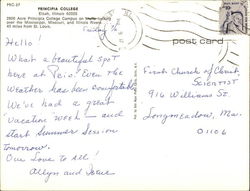 MC-27
PRINCIPIA COLLEGE
Elsah, Illinois 62028
2600 Acre Principia College Campus on bluffs
over the Mississippi, Missouri, and Illinois Rivers
40 miles from St. Louis.
Friday
post card
Hello!
What a beautiful spot
here at Prin! Even the
weather has been comfortable
We've had a great
vacation week - and
start Summer Session
tomorrow.
Our Love to All!
First Church of Christ,
Scientist
916 Williams St.
Longmeadow, Ma.
01106